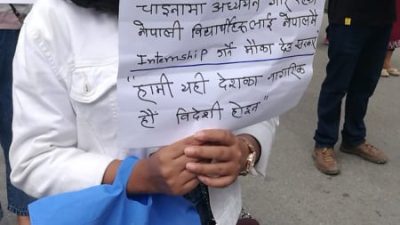 चाइनामा अध्ययन गरि रहेका
नेपाली विद्यार्थीहरूलाई नेपालमै
Internship गर्ने मौका देउ सरकार
"हामी यही देशका नागरिक
हौं विदेशी होइन"